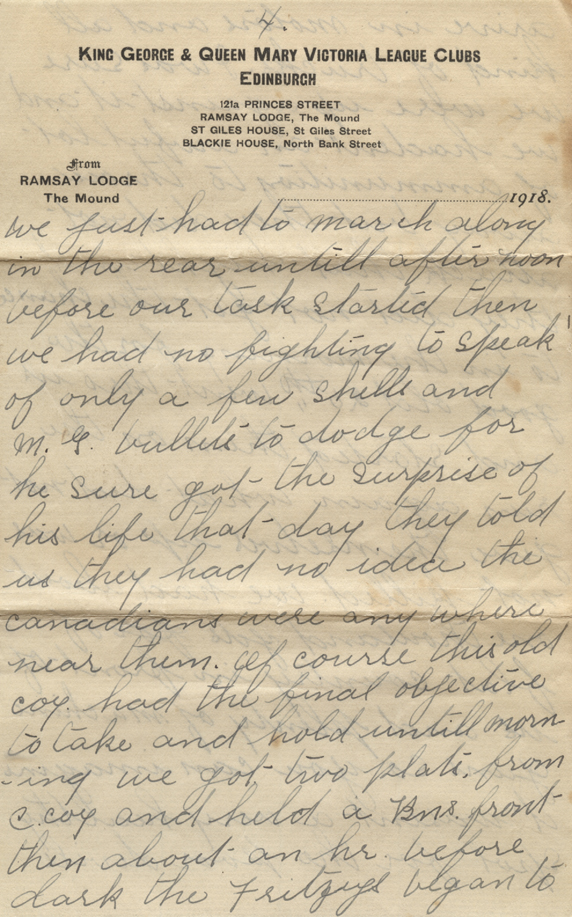 4.
KING GEORGE & QUEEN MARY VICTORIA LEAGUE CLUBS
EDINBURGH
121a PRINCES STREET
RAMSAY LODGE, The Mound
ST GILES HOUSE, St Giles Street
BLACKIE HOUSE, North Bank Street
From
RAMSAY LODGE
The Mound
1918.
we just had to march along
in the rear untill after noon
before our task started then
we had no fighting to speak
of only a few shells and
M. G. bullets to dodge for
he sure got the surprise of
his life that day they told
us they had no idea the
canadians were any where
near them. Of course this old
coy. had the final objective
to take and hold untill morn
-ing we got two plats. from
C. coy and held a Bns. front
then about an hr. before
dark the Fritzys began to